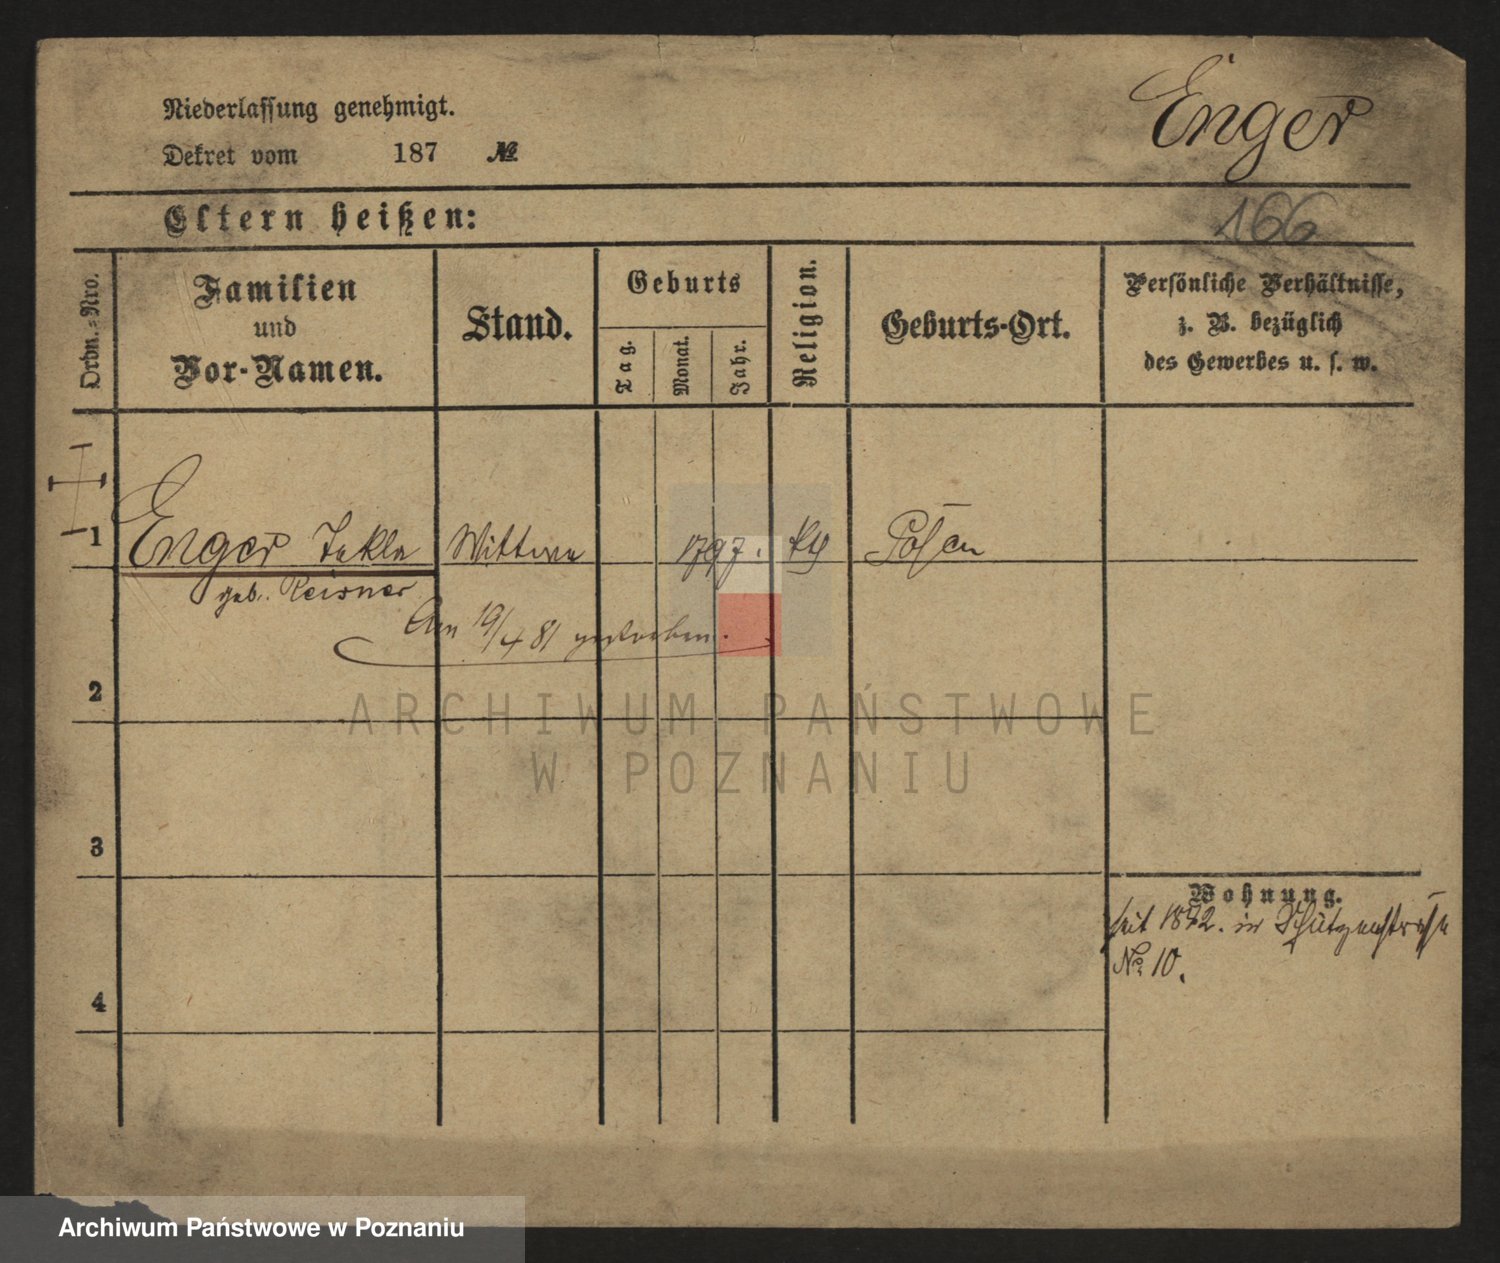 Enger
Niederlassung genehmigt.
Dekret vom 187 №
166
Eltern heißen:
Ordn.=Nro.
Familien
und
Vor-Namen.
Stand.
Geburts
Tag.
Monat.
Jahr.
Religion.
Geburts-Ort.
Persönliche Verhältnisse,
z. B. bezüglich
des Gewerbes u. s. w.
1 Enger Tekla Wittwe 1797. Posen
geb. Reisner
Am 19/4 81 gestorben.
2
ARCHIWUM PAŃSTWOWE
W POZNANIU
3
Wohnung.
seit 1872. in Schützenstraße
№ 10.
4
Archiwum Państwowe w Poznaniu